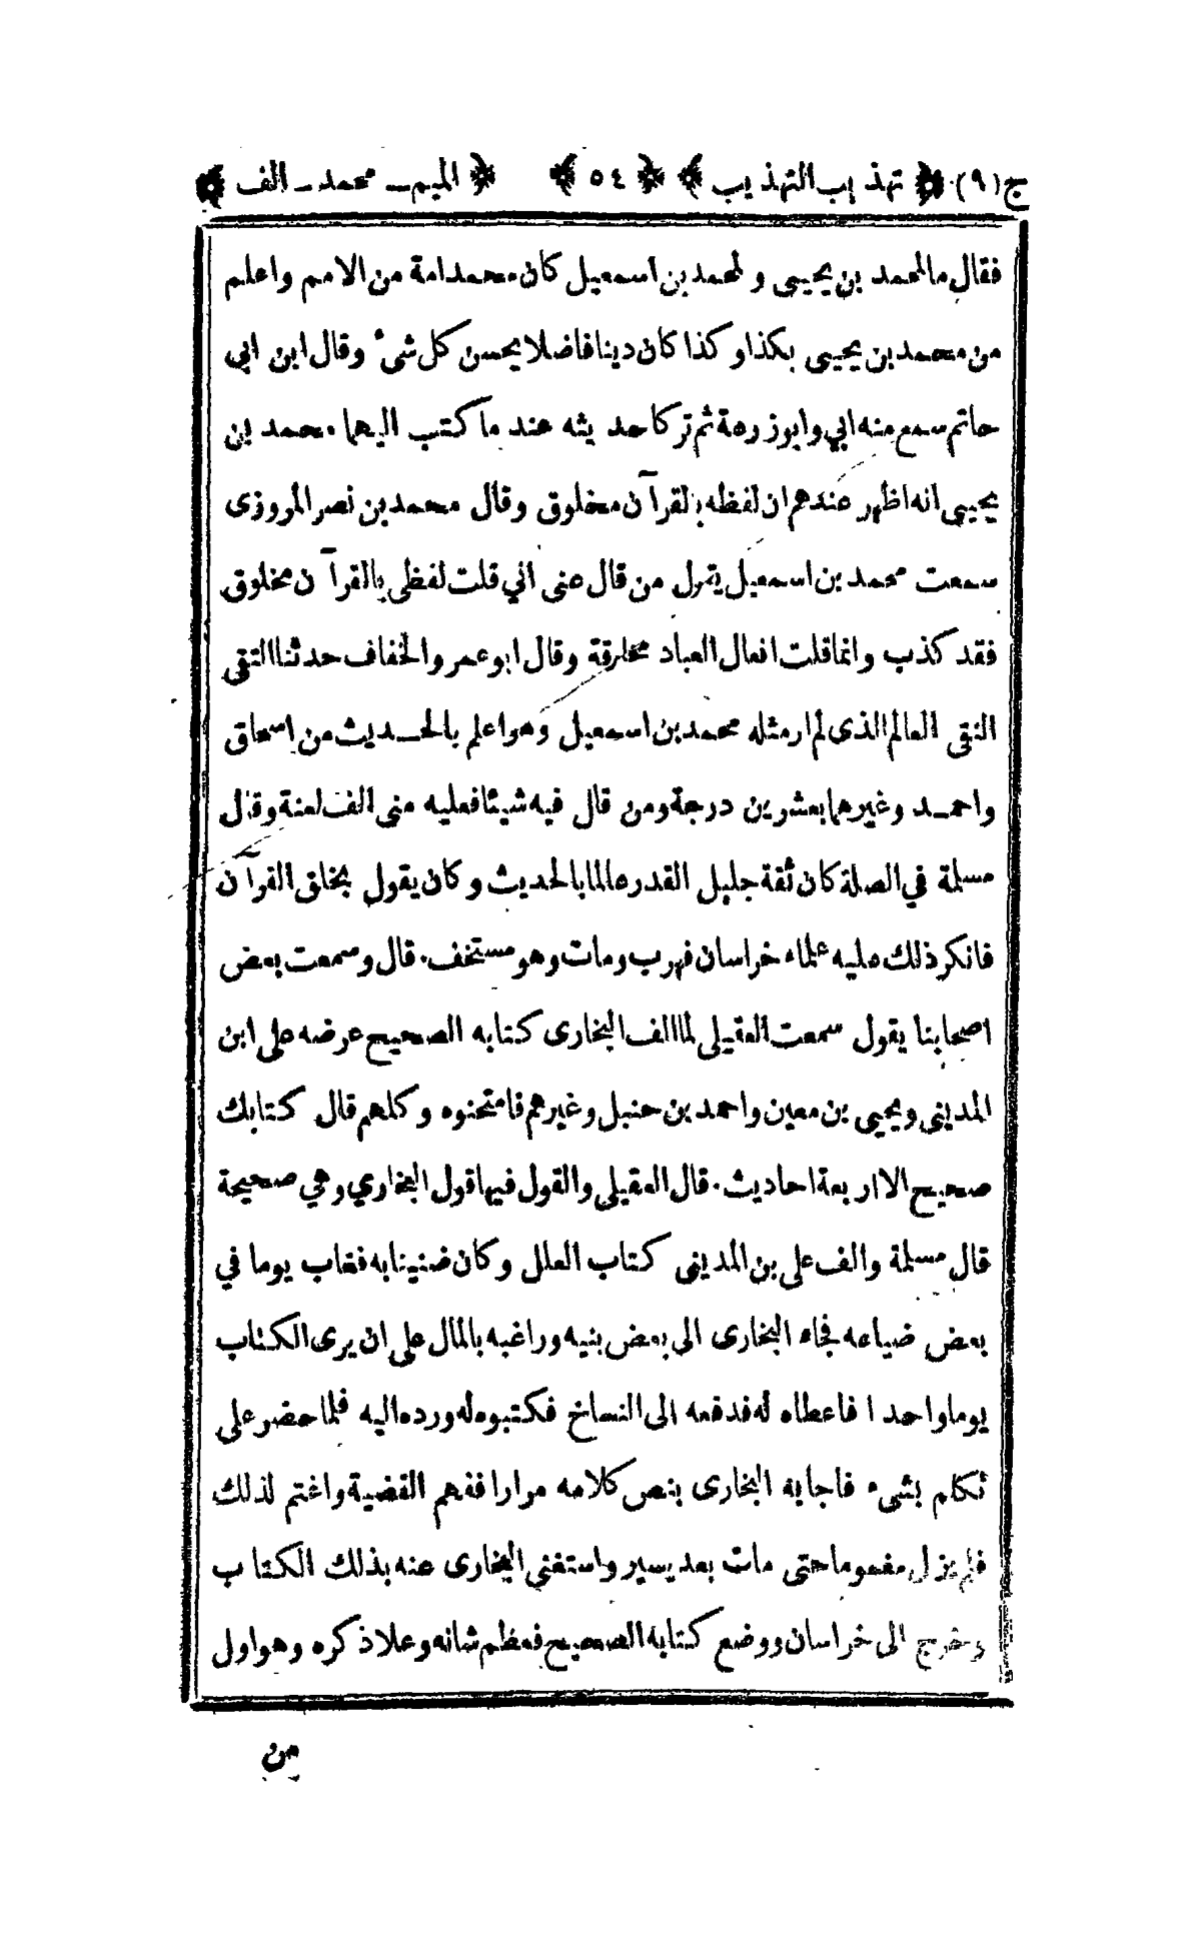 ج (٩) ﴿ تهذيب التهذيب ﴾ ﴿ ٥٤ ﴾ ﴿ الميم ـ محمد ـ الف ﴾
فقال مالمحمد بن يحيى ولمحمد بن اسمعيل كان محمد امة من الامم واعلم
من محمد بن يحيى بكذا وكذا كان دينا فاضلا يحسن كل شئ وقال ابن ابي
حاتم سمع منه ابي وابو زرعة ثم تركا حديثه عند ما كتب اليهما محمد بن
يحيى انه اظهر عندهم ان لفظه بالقرآن مخلوق وقال محمد بن نصر المروزى
سمعت محمد بن اسمعيل يقول من قال عنى انى قلت لفظى بالقرآن مخلوق
فقد كذب وانما قلت افعال العباد مخلوقة وقال ابو عمرو الخفاف حدثنا التقى
النقى العالم الذى لم ار مثله محمد بن اسمعيل وهو اعلم بالحديث من اسحاق
واحمد وغيرهما بعشرين درجة ومن قال فيه شيئا فعليه منى الف لعنة وقال
مسلمة في الصلة كان ثقة جليل القدر عالما بالحديث وكان يقول بخلق القرآن
فانكر ذلك عليه علماء خراسان فهرب ومات وهو مستخف. قال وسمعت بعض
اصحابنا يقول سمعت العقيلى لما الف البخارى كتابه الصحيح عرضه على ابن
المدينى ويحيى بن معين واحمد بن حنبل وغيرهم فامتحنوه وكلهم قال كتابك
صحيح الا اربعة احاديث. قال العقيلى والقول فيها قول البخاري وهي صحيحة
قال مسلمة والف على بن المدينى كتاب العلل وكان ضنينا به فغاب يوما في
بعض ضياعه فجاء البخارى الى بعض بنيه وراغبه بالمال على ان يرى الكتاب
يوما واحدا فاعطاه له فدفعه الى النساخ فكتبوه له ورده اليه فلما حضر على
تكلم بشىء فاجابه البخارى بنص كلامه مرارا ففهم القضية واغتم لذلك
فلم يزل مغموما حتى مات بعد يسير واستغنى البخارى عنه بذلك الكتاب
وخرج الى خراسان ووضع كتابه الصحيح فعظم شانه وعلا ذكره وهو اول
من